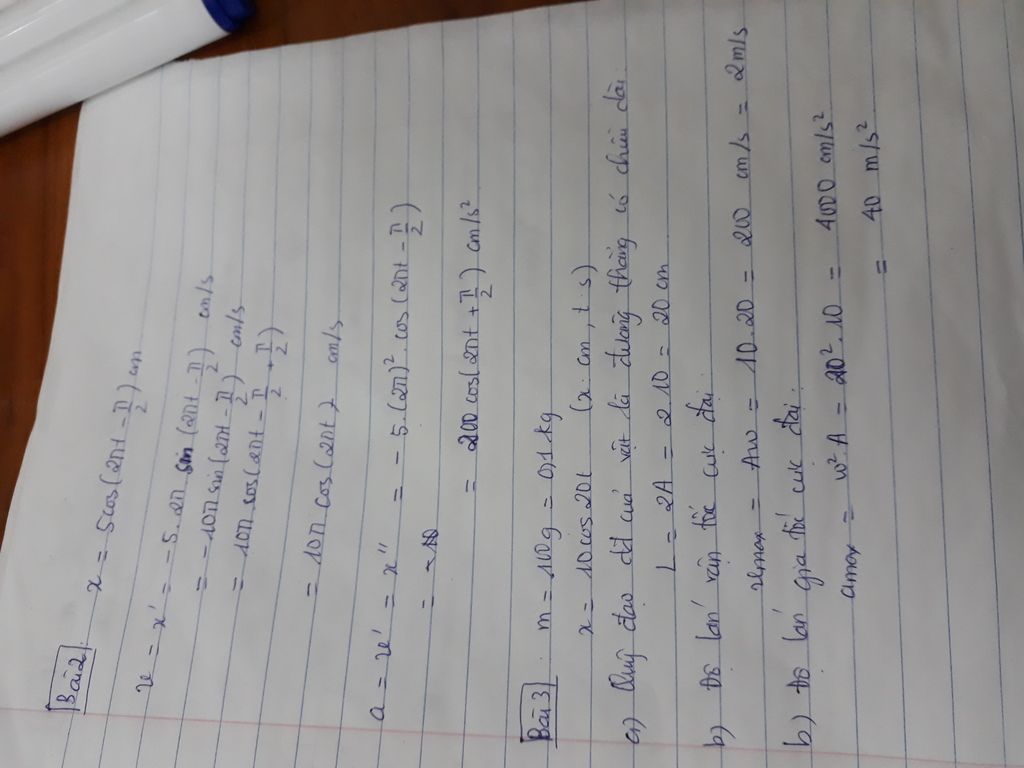 Bài 2 x = 5cos(2πt - π/2) cm
v = x' = -5.2π sin(2πt - π/2) cm/s
= -10π sin(2πt - π/2) cm/s
= 10π cos(2πt - π/2 + π/2)
= 10π cos(2πt) cm/s
a = v' = x'' = -5.(2π)² cos(2πt - π/2)
= 200 cos(2πt + π/2) cm/s²
Bài 3 m = 100g = 0,1kg
x = 10cos20t (x: cm, t: s)
a) Quỹ đạo dđ của vật là đường thẳng có chiều dài:
L = 2A = 2.10 = 20 cm
b) Độ lớn vận tốc cực đại:
vmax = Aω = 10.20 = 200 cm/s = 2m/s
b) Độ lớn gia tốc cực đại:
amax = ω².A = 20².10 = 4000 cm/s²
= 40 m/s²